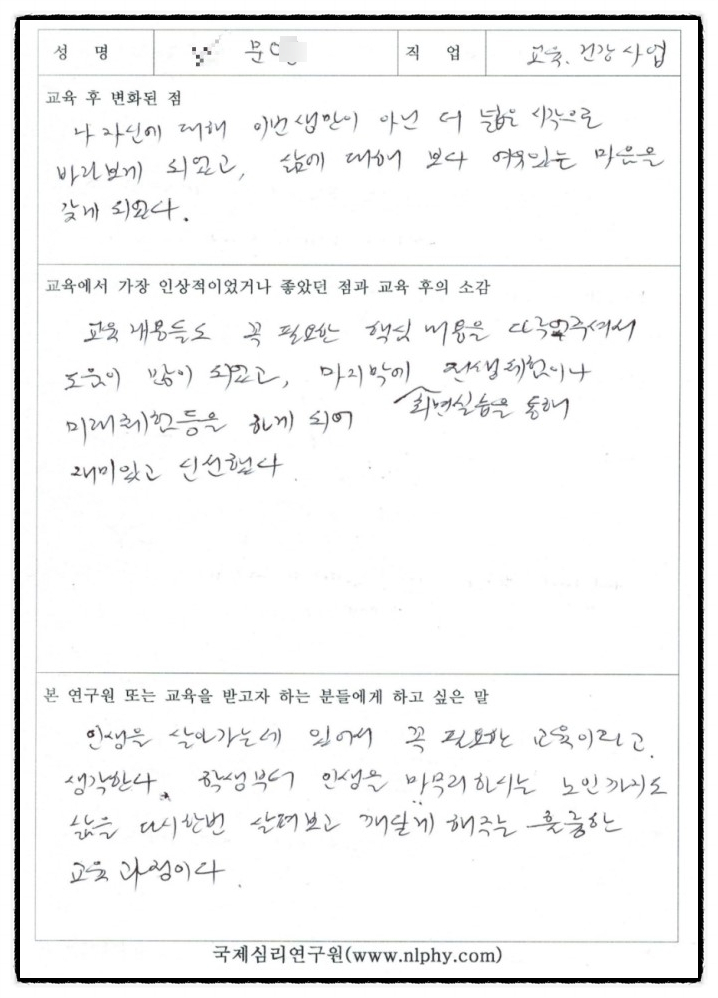 성 명 문 직 업 교육. 건강 사업
교육 후 변화된 점
나 자신에 대해 이번 생만이 아닌 더 넓은 시각으로
바라보게 되었고, 삶에 대해 보다 여유있는 마음을
갖게 되었다.
교육에서 가장 인상적이었거나 좋았던 점과 교육 후의 소감
교육 내용들도 꼭 필요한 핵심 내용을
도움이 많이 되었고, 마지막에 전생체험이나
미래체험등을 하게 되어 최면실습을 통해
재미있고 신선했다.
본 연구원 또는 교육을 받고자 하는 분들에게 하고 싶은 말
인생을 살아가는데 있어서 꼭 필요한 교육이라고
생각한다. 학생부터 인생을 마무리하시는 노인까지도
삶을 다시한번 살펴보고 깨닫게 해주는 훌륭한
교육 과정이다.
국제심리연구원(www.nlphy.com)